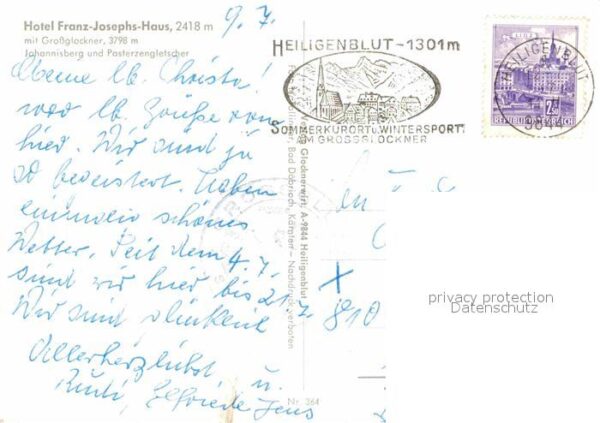 9. 7.
Hotel Franz-Josephs-Haus, 2418 m
mit Großglockner, 3798 m
Johannisberg und Pasterzengletscher
Christa!
lb. Grüße von
hier. Wir sind ja
so begeistert. Haben
schönes
Wetter. Seit dem 4. 7.
sind wir hier bis 21. 7.
Wir sind
Allerherzlichst
u.
Elfriede Jens
HEILIGENBLUT - 1301 m
SOMMERKURORT u. WINTERSPORT
AM GROSSGLOCKNER
HEILIGENBLUT
9844
LINZ
2S
REPUBLIK ÖSTERREICH
Glocknerwirt, A-9844 Heiligenblut
Kärnten - Nachdruck verboten
Nr. 364
810
privacy protection
Datenschutz